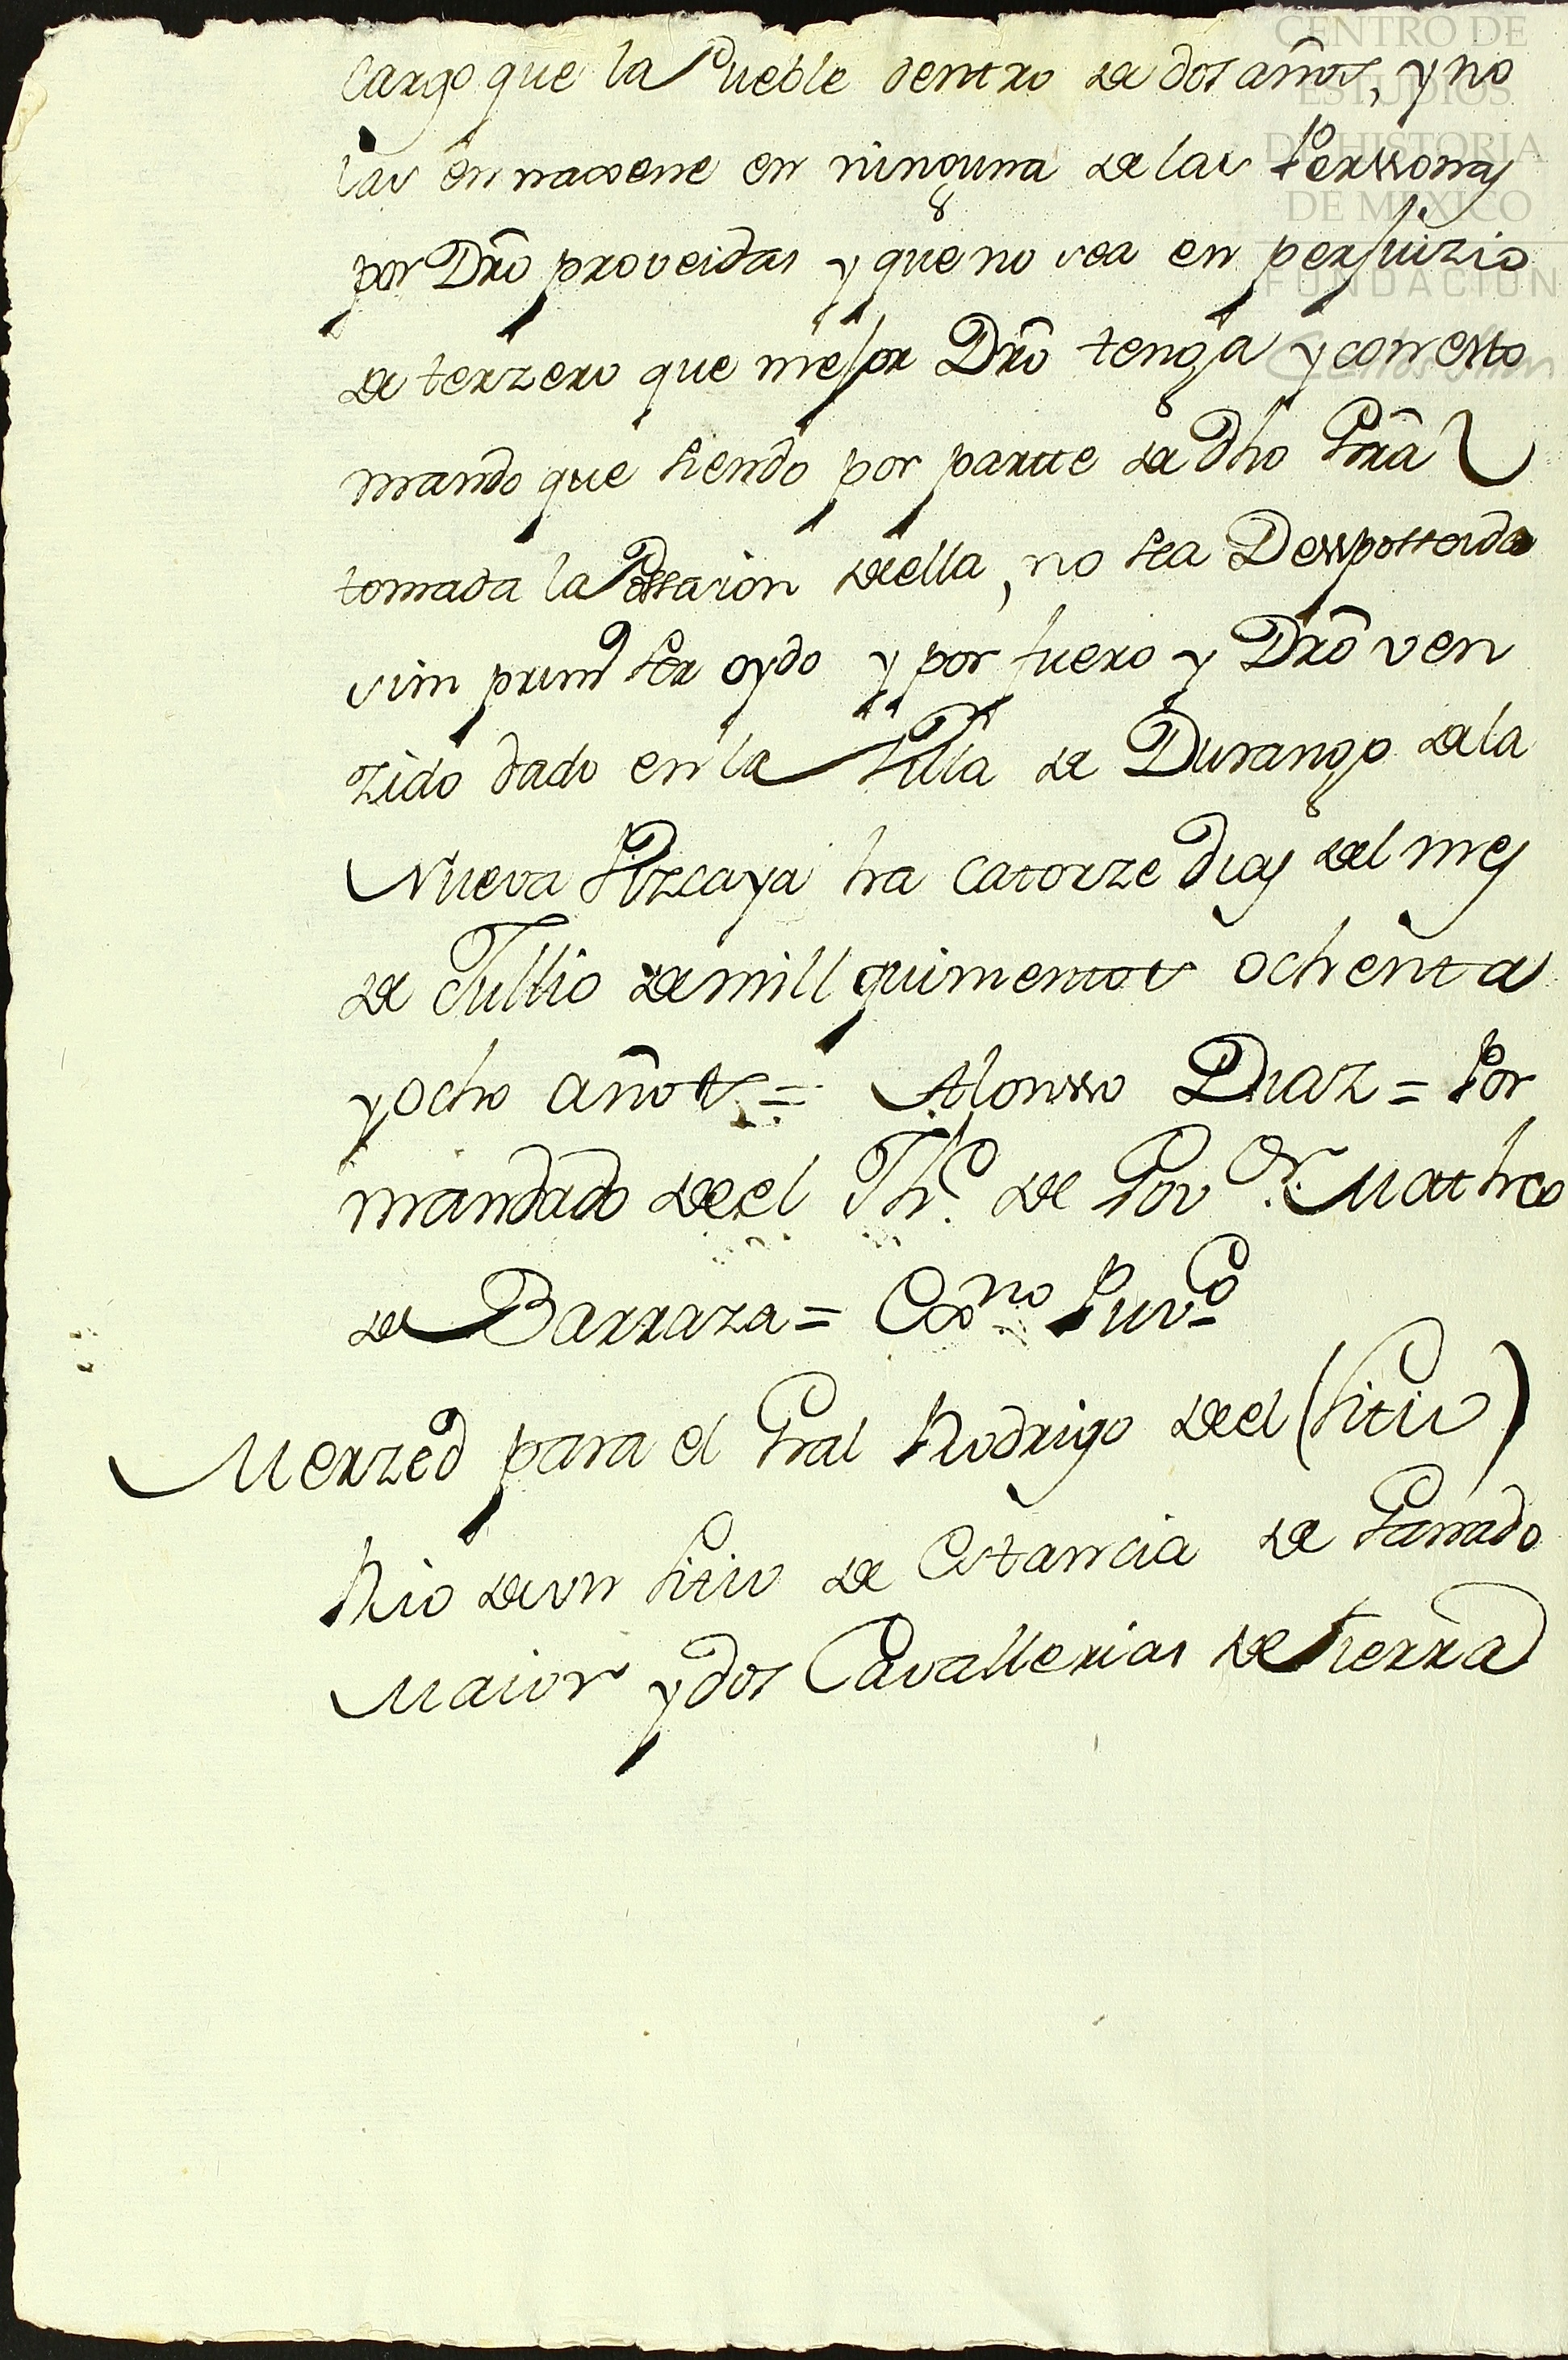 cargo que la Pueble dentro de dos años, y no
las ennaxene en ninguna de las Perssonas
por Dro proveidas y que no sea en perjuizio
de terzero que mejor Dro tenga y con esto
mando que siendo por partte de dho Gral
tomada la Possesion de ella, no sea Desposseida
sin primo ser oydo y por fuero y Dro ven
zido dado en la Villa de Durango de la
Nueva Vizcaya ha catorze dias del mes
de Jullio de mill quinientos ochenta
y ocho años = Alonsso Diaz = Por
mandado de el Thе. de Govor. Matheo
de Barraza = Exno Puvco
Merzed para el Gral Rodrigo de el (sitio)
Rio de un sitio de Estancia de Ganado
Maior y dos Cavallerias de tierra
CENTRO DE
ESTUDIOS
DE HISTORIA
DE MEXICO
FUNDACIÓN
Carlos Slim